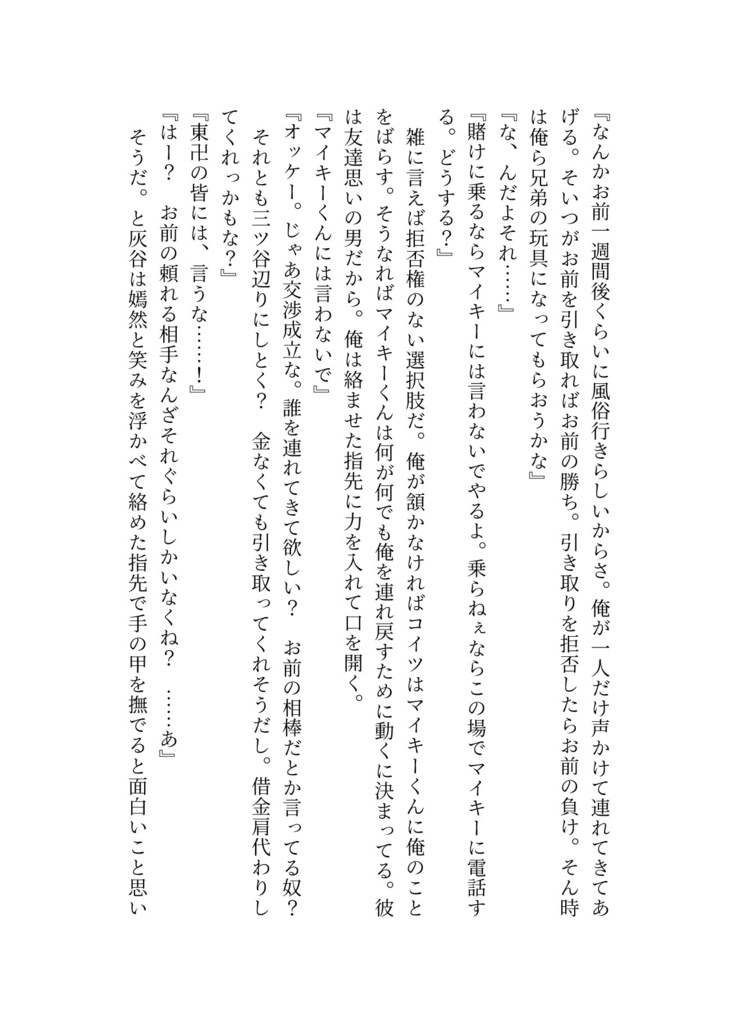 『なんかお前一週間後くらいに風俗行きらしいからさ。俺が一人だけ声かけて連れてきてあ
げる。そいつがお前を引き取ればお前の勝ち。引き取りを拒否したらお前の負け。そん時
は俺ら兄弟の玩具になってもらおうかな』
『な、んだよそれ……』
『賭けに乗るならマイキーには言わないでやるよ。乗らねぇならこの場でマイキーに電話す
る。どうする？』
　雑に言えば拒否権のない選択肢だ。俺が頷かなければコイツはマイキーくんに俺のこと
をばらす。そうなればマイキーくんは何が何でも俺を連れ戻すために動くに決まってる。彼
は友達思いの男だから。俺は絡ませた指先に力を入れて口を開く。
『マイキーくんには言わないで』
『オッケー。じゃあ交渉成立な。誰を連れてきて欲しい？　お前の相棒だとか言ってる奴？
　それとも三ツ谷辺りにしとく？　金なくても引き取ってくれそうだし。借金肩代わりし
てくれっかもな？』
『東卍の皆には、言うな……！』
『はー？　お前の頼れる相手なんざそれぐらいしかいなくね？　……あ』
　そうだ。と灰谷は嫣然と笑みを浮かべて絡めた指先で手の甲を撫でると面白いこと思い